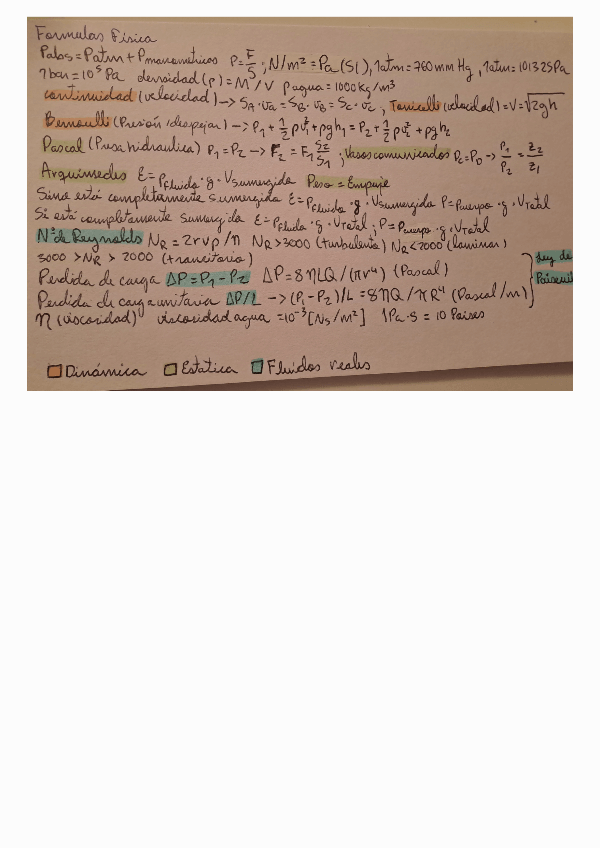 Formulas Física
Pabs = Patm + Pmanométricos P = F/S ; N/m² = Pa (SI), 1atm = 760 mm Hg, 1atm = 101325 Pa
1 bar = 10⁵ Pa densidad (ρ) = M/V ρ agua = 1000 kg/m³
Continuidad (velocidad) → S_A · v_A = S_B · v_B = S_C · v_C, Torricelli (velocidad) = V = √2gh
Bernoulli (Presión/despejar) → P₁ + 1/2 ρv₁² + ρgh₁ = P₂ + 1/2 ρv₂² + ρgh₂
Pascal (Prensa hidraulica) P₁ = P₂ → F₂ = F₁ S₂/S₁ ; Vasos comunicados P_C = P_D → ρ₁/ρ₂ = z₂/z₁
Arquímedes E = ρFluido · g · VSumergido Peso = Empuje
Si no está completamente sumergida E = ρFluido · g · VSumergida P = ρcuerpo · g · VTotal
Si está completamente sumergida E = ρFluido · g · VTotal ; P = ρcuerpo · g · VTotal
Nº de Reynolds N_R = 2rvρ/η N_R > 3000 (turbulenta) N_R < 2000 (laminar)
3000 > N_R > 2000 (transitario)
Perdida de carga ΔP = P₁ - P₂ ΔP = 8ηLQ/(πr⁴) (Pascal)
Ley de
Perdida de carga unitaria ΔP/L → (P₁ - P₂)/L = 8ηQ/πR⁴ (Pascal/m)
η (viscosidad) viscosidad agua = 10⁻³ [Ns/m²] 1Pa·s = 10 Poises
Dinámica Estática Fluidos reales